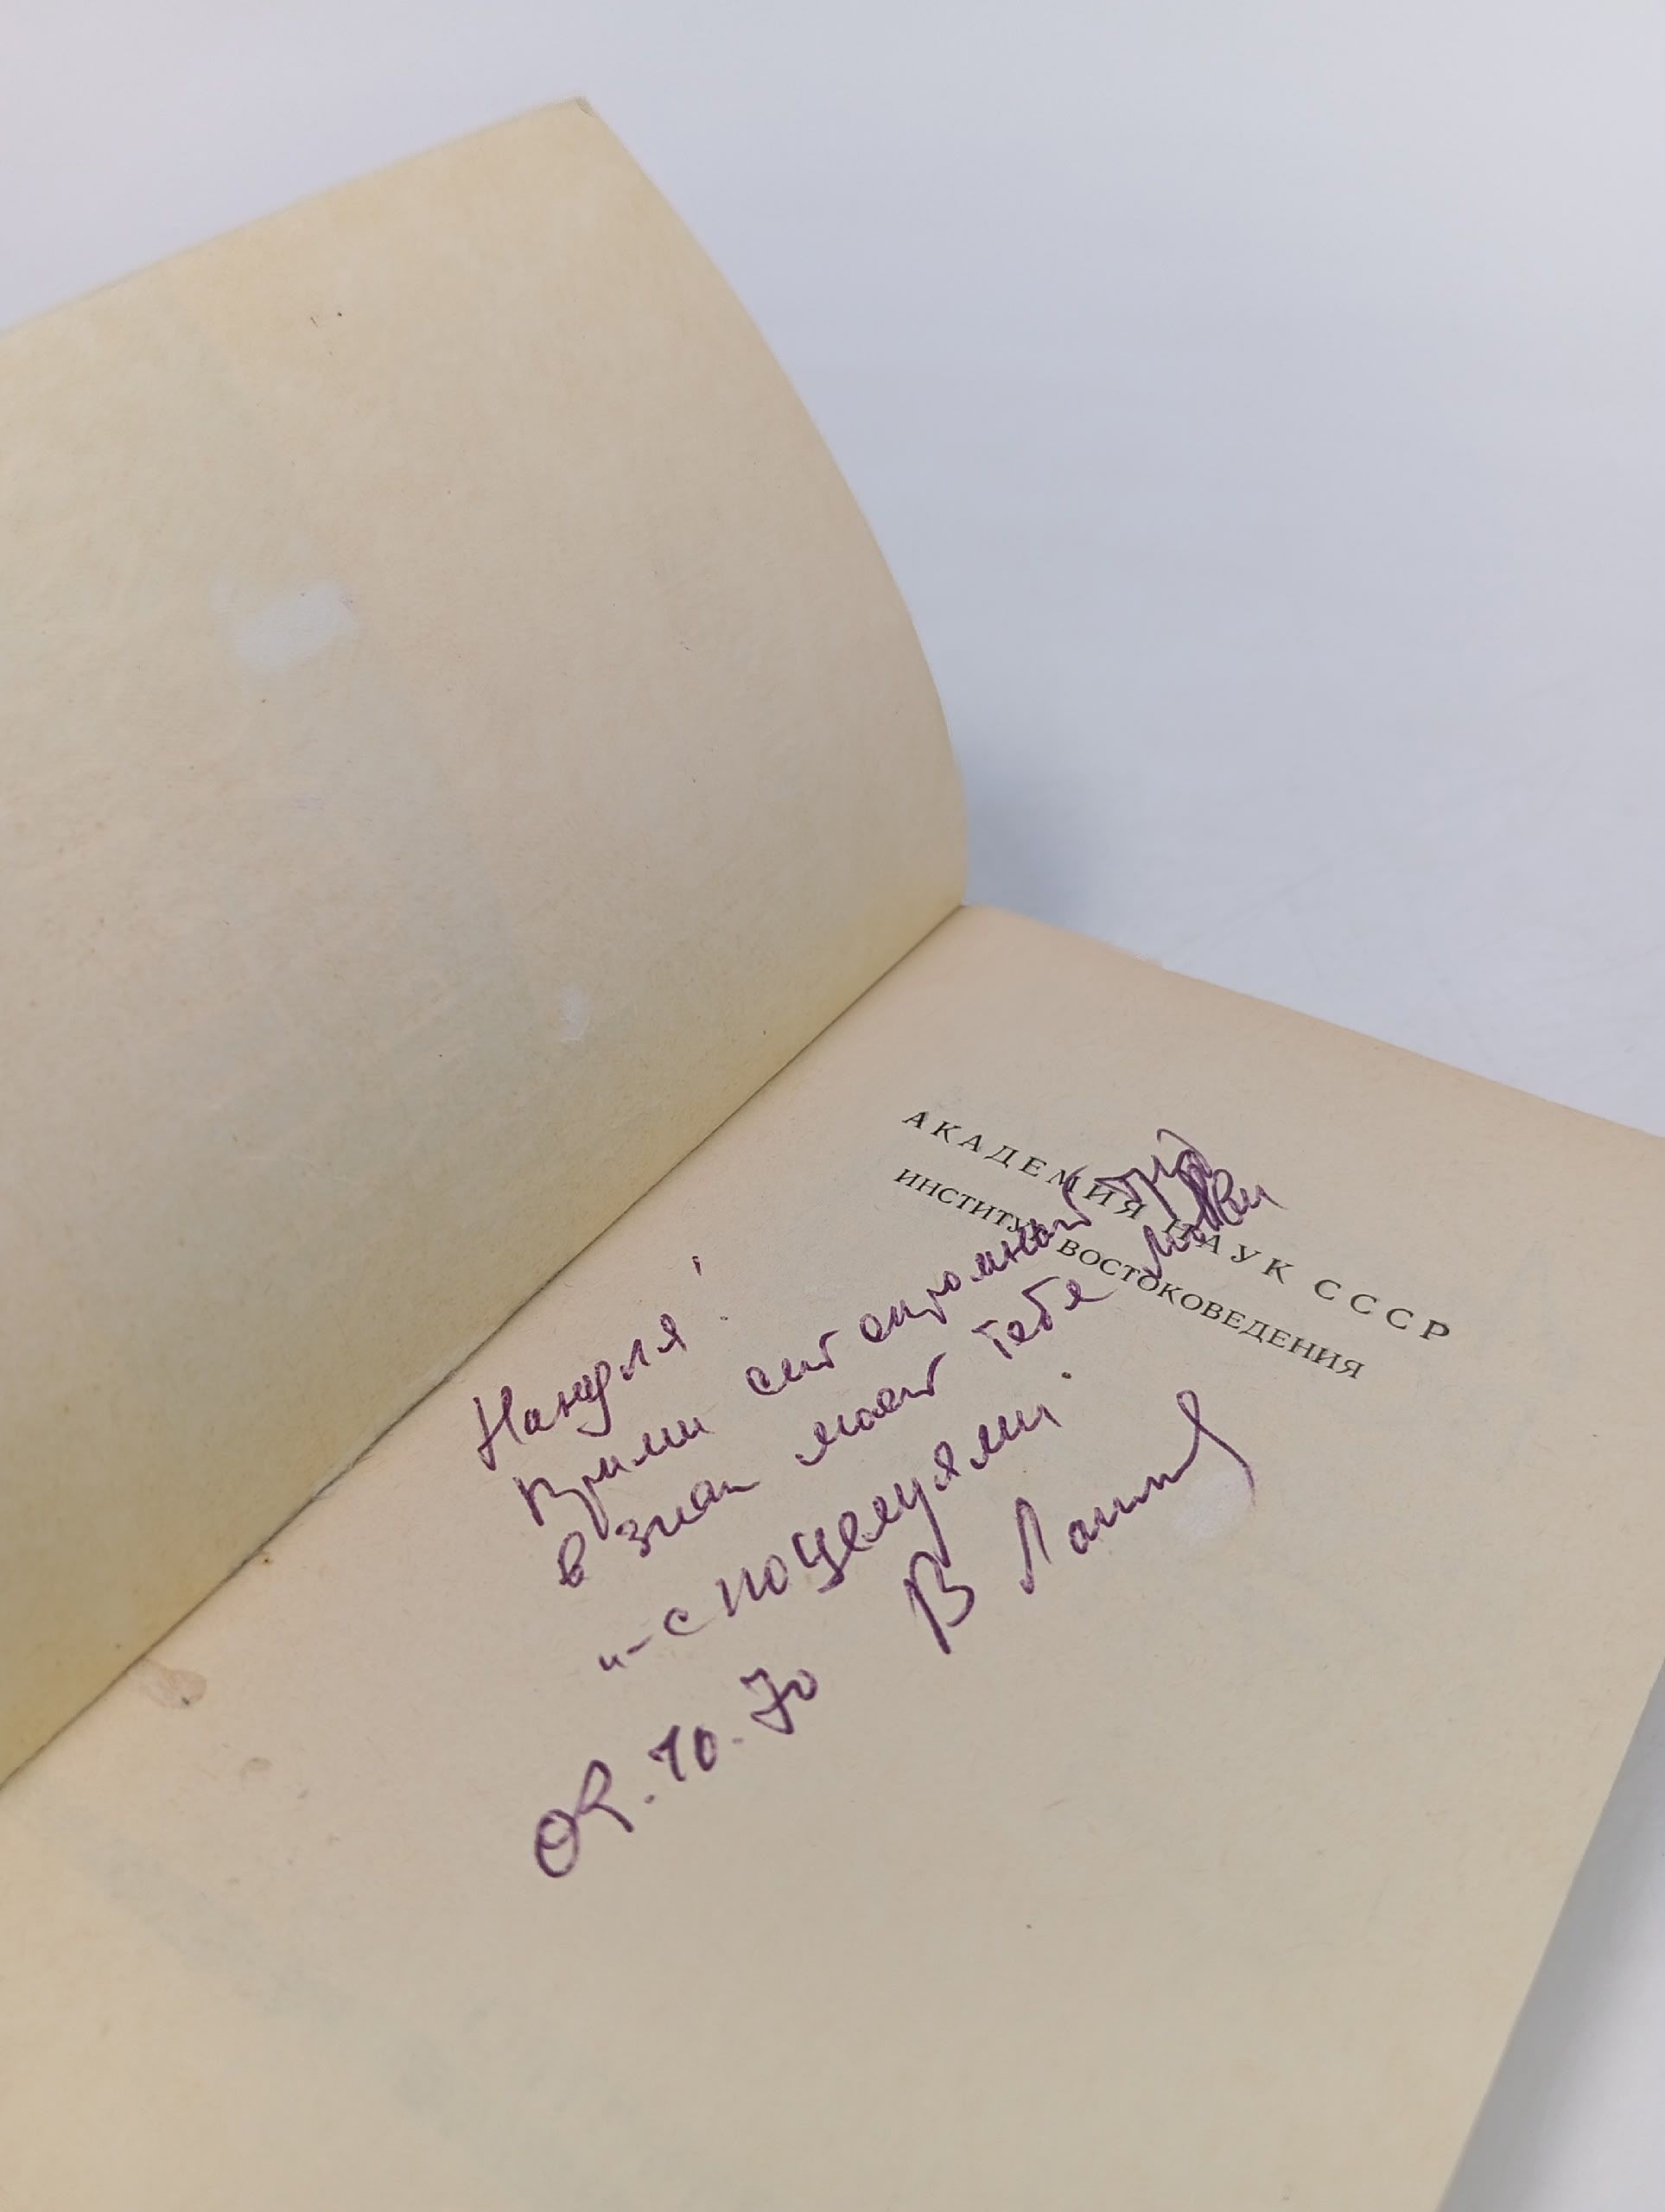 АКАДЕМИЯ НАУК СССР
ИНСТИТУТ ВОСТОКОВЕДЕНИЯ
Нануля!
Прими сей скромный труд
в знак моей к тебе любви
и – с поцелуями.
В
10.70